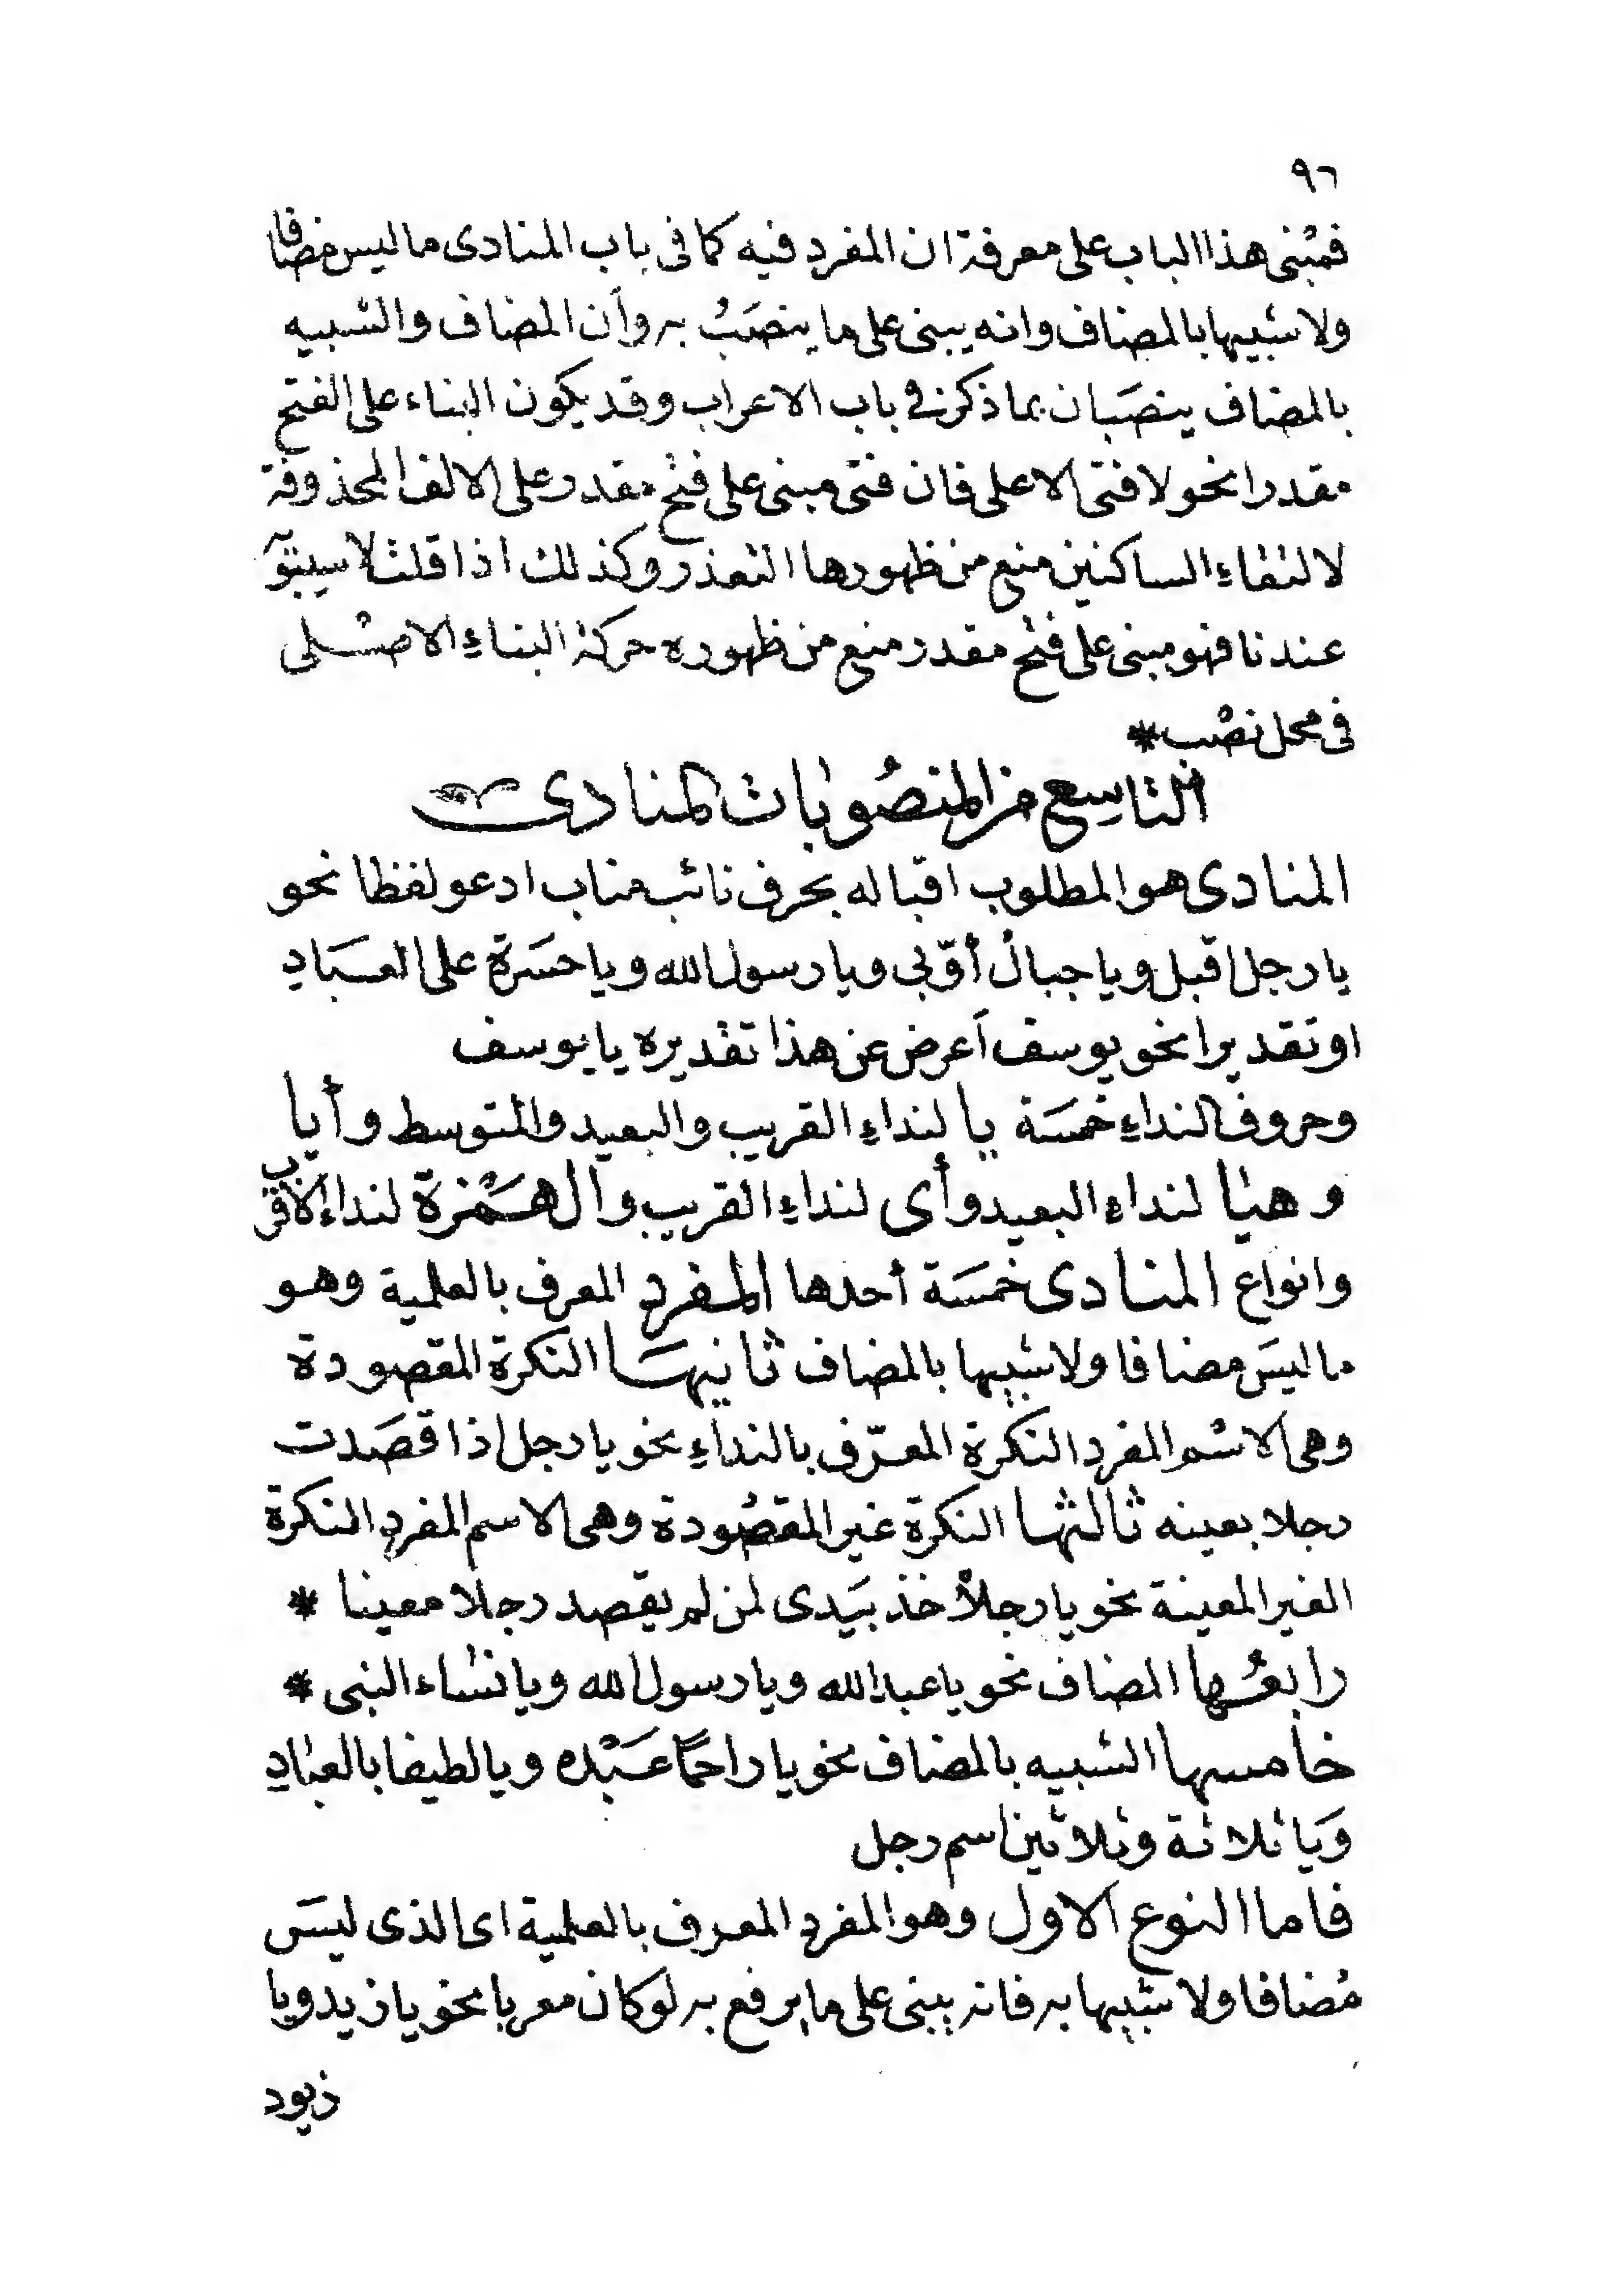 ٩٦
فمبنى هذا الباب على معرفة ان المفرد فيه كما فى باب المنادى ما ليس مضافا
ولا شبيها بالمضاف وانه يبنى على ما ينصَبُ به وأن المضاف والشبيه
بالمضاف ينصَبان بما ذكر فى باب الاعراب وقد يكون البناء على الفتح
مقدرا نحو لا فتى الا على فان فتى مبنى على فتح مقدر على الالف المحذوفة
لالتقاءِ الساكنين منع من ظهورها التعذر وكذلك اذا قلت لا سيبَوَ
عندنا فهو مبنى على فتح مقدر منع من ظهوره حركة البناءِ الاصْلى
فى محل نصْب *
التاسِع من المنصُوبات المنادى
المنادى هو المطلوب اقباله بحرف نائب مناب ادعو لفظا نحو
يا رجل اقبل ويا جبالُ أوّبى ويا رسول الله ويا حسَرة على العبَادِ
او تقديرا نحو يوسف أعرض عن هذا تقديره يا يوسف
وحروف النداءِ خمسَة يا لنداءِ القريب والبعيد والمتوسط وأيا
وهيا لنداءِ البعيد وأى لنداءِ القريب والهَمْزة لنداء الأقرب
وانواع المنادى خمسَة أحدها المفرد المعرف بالعلمية وهو
ما ليسَ مضافا ولا شبيها بالمضاف ثانيهَا النكرة المقصودة
وهى الاسْم المفرد النكرة المعرّف بالنداءِ نحو يا رجل اذا قصَدت
رجلا بعينه ثالثها النكرة غير المقصُودة وهى الاسم المفرد النكرة
الغير المعينة نحو يا رجلاً خذ بيَدى لمن لم يقصد رجلا معينا *
رابعُها المضاف نحو يا عبد الله ويا رسول الله ويا نساء النبى *
خامسها الشبيه بالمضاف نحو يا راحمًا عَبْده ويا لطيفا بالعبادِ
وَيا ثلاثة وثلاثين اسم رجل
فاما النوع الاول وهو المفرد المعرف بالعلمية اى الذى ليسَ
مُضافا ولا شبيها به فانه يبنى على ما يرفع به لو كان معربا نحو يا زيد ويا
زيود